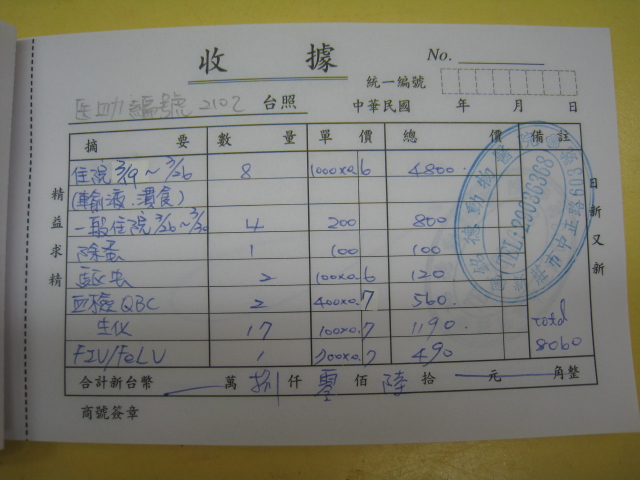 收 據
No.
統一編號
醫助編號 2102 台照 中華民國 年 月 日
摘 要 數 量 單 價 總 價 備 註
住院 3/19~3/26 8 1000x0.6 4800.
(輸液.灌食)
一般住院 3/26~3/30 4 200 800
除蚤 1 100 100
驅虫 2 100x0.6 120
血檢 QBC 2 400x0.7 560.
生化 17 100x0.7 1190.
FIV/FeLV 1 700x0.7 490
Total
8060
合計新台幣 萬 捌 仟 零 佰 陸 拾 元 角整
商號簽章
精益求精
日新又新